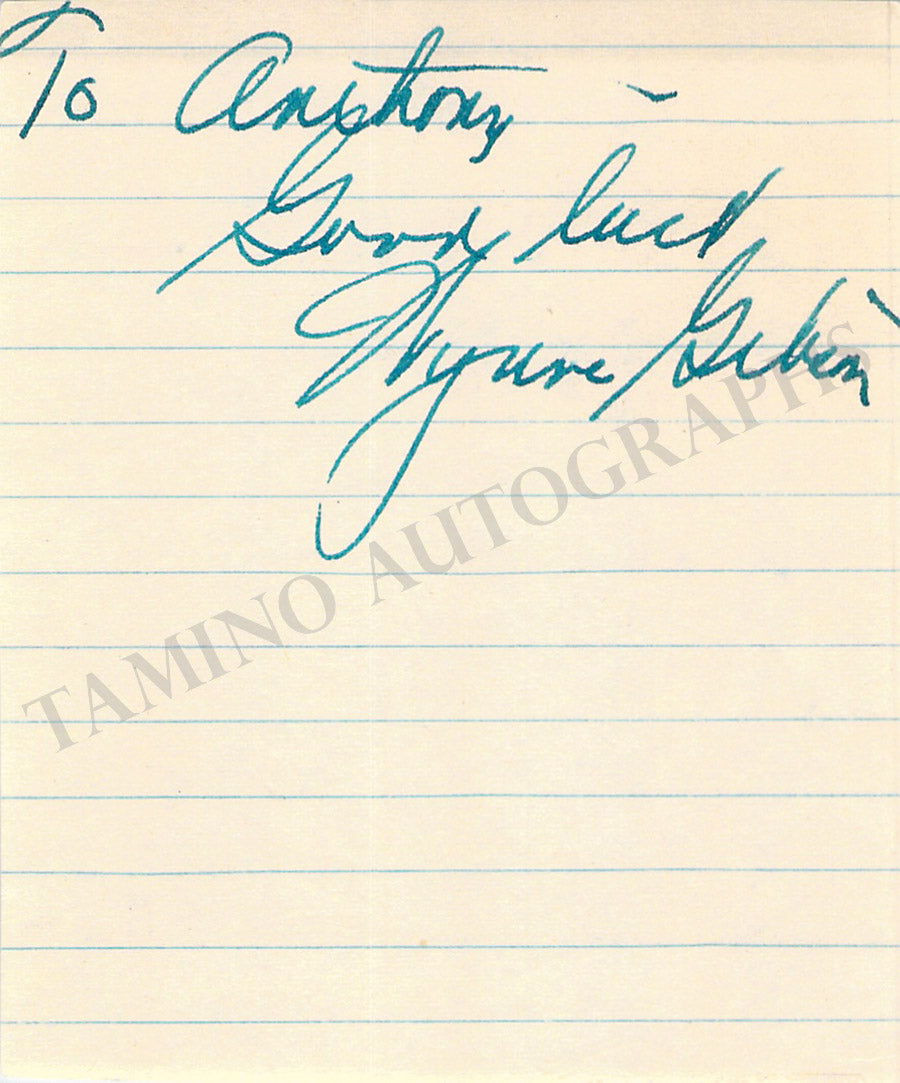 To Anthony -
Good luck
Wynne Gibson
TAMINO AUTOGRAPHS